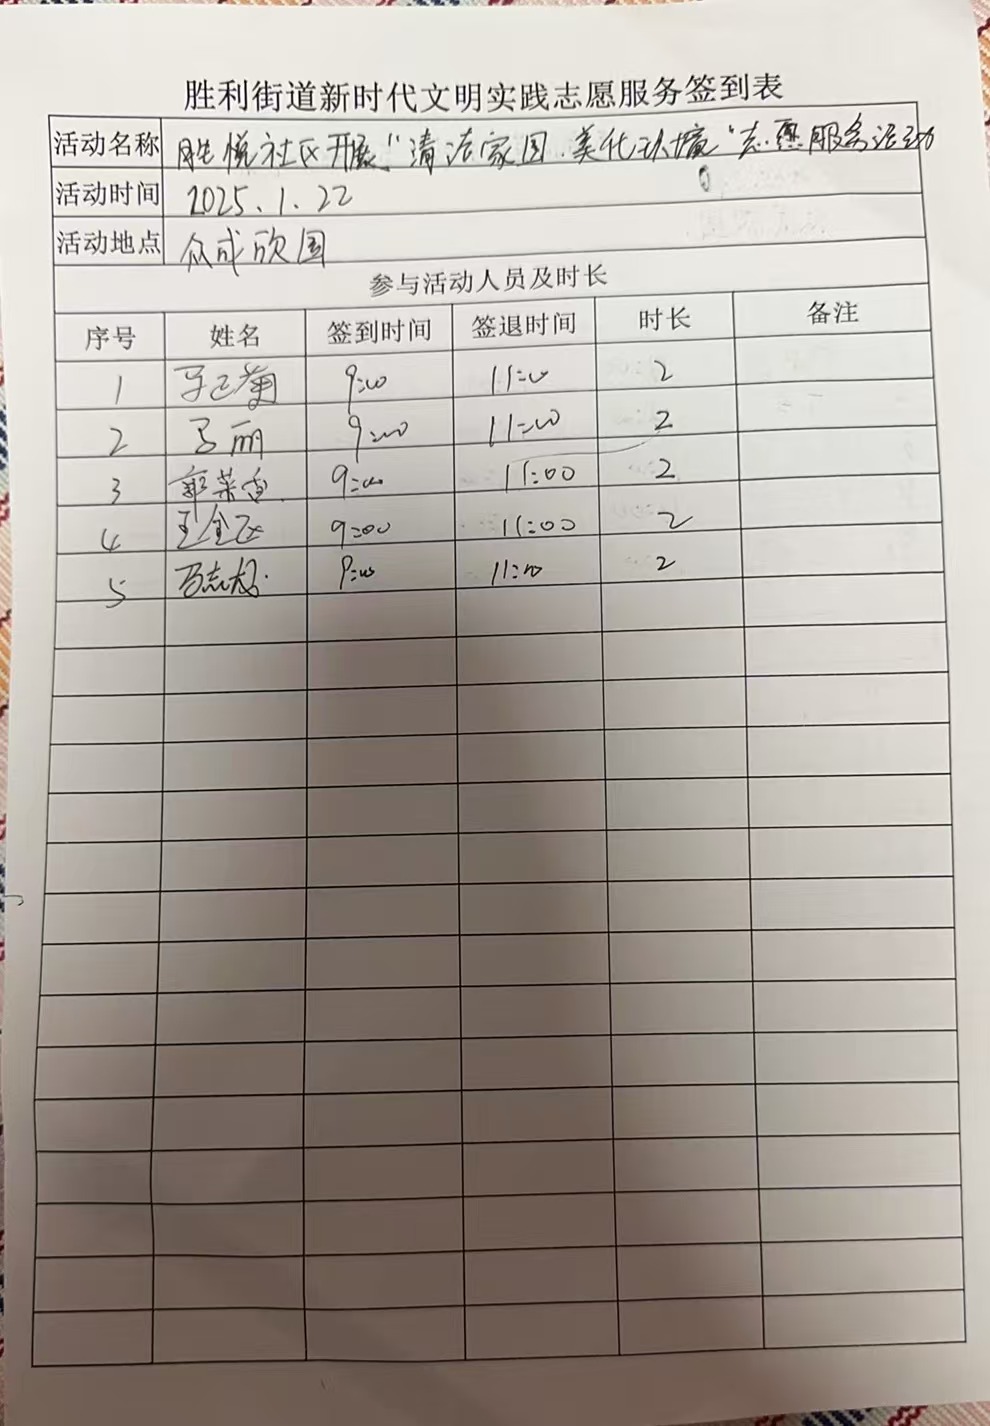 胜利街道新时代文明实践志愿服务签到表
活动名称 胜悦社区开展"清洁家园.美化环境"志愿服务活动
活动时间 2025.1.22
活动地点 众成欣园
参与活动人员及时长
序号 姓名 签到时间 签退时间 时长 备注
1 9:00 11:00 2
2 马丽 9:00 11:00 2
3 9:00 11:00 2
4 9:00 11:00 2
5 9:00 11:00 2